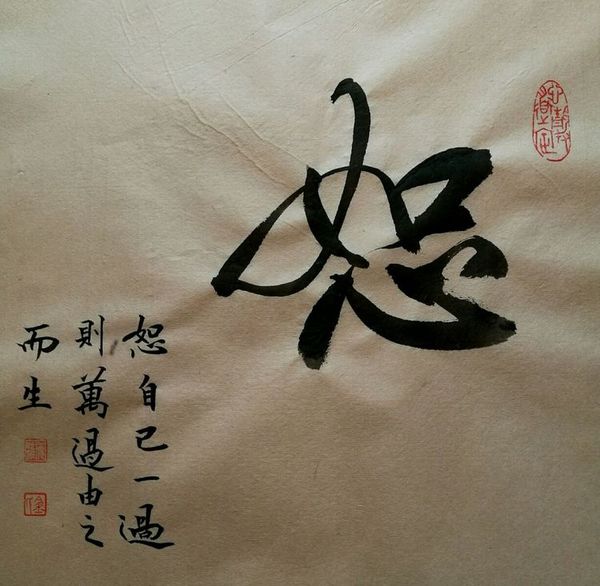 恕
恕自己一過
則萬過由之
而生